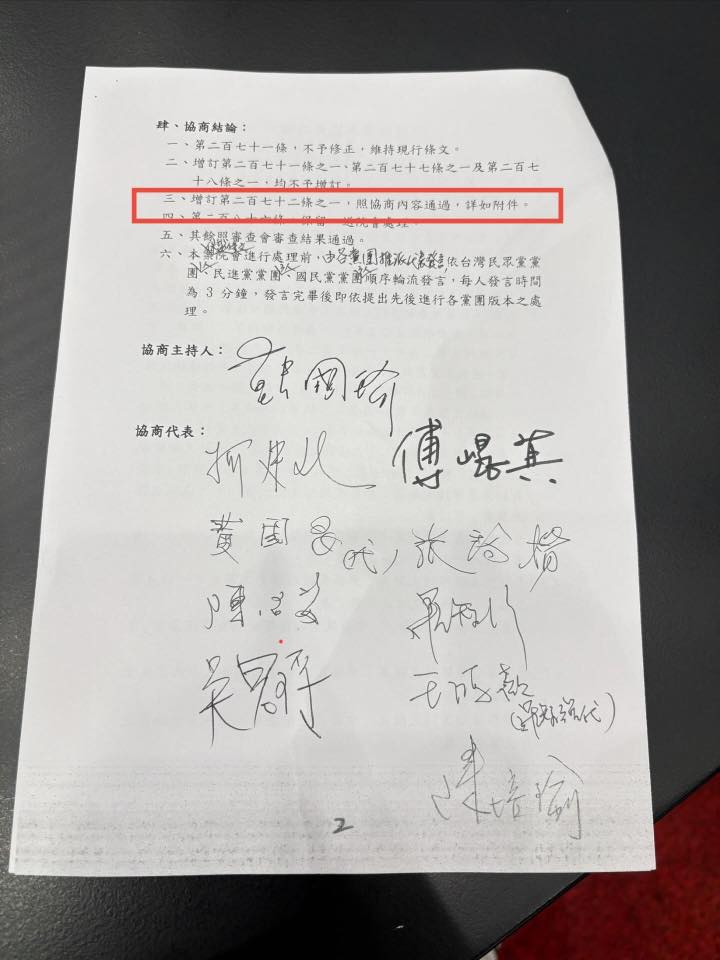 肆、協商結論：
一、第二百七十一條，不予修正，維持現行條文。
二、增訂第二百七十一條之一、第二百七十七條之一及第二百七
十八條之一，均不予增訂。
三、增訂第二百七十二條之一，照協商內容通過，詳如附件。
四、第二百八十六條，保留，送院會處理。
五、其餘照審查會審查結果通過。
六、本案院會進行處理前，由各黨團推派代表發言，依台灣民眾黨黨
團、民進黨黨團、國民黨黨團順序輪流發言，每人發言時間
為 3 分鐘，發言完畢後即依提出先後進行各黨團版本之處
理。
協商主持人：
韓國瑜
協商代表：
傅崐萁
黃國昌(代)
陳
陳培瑜
2